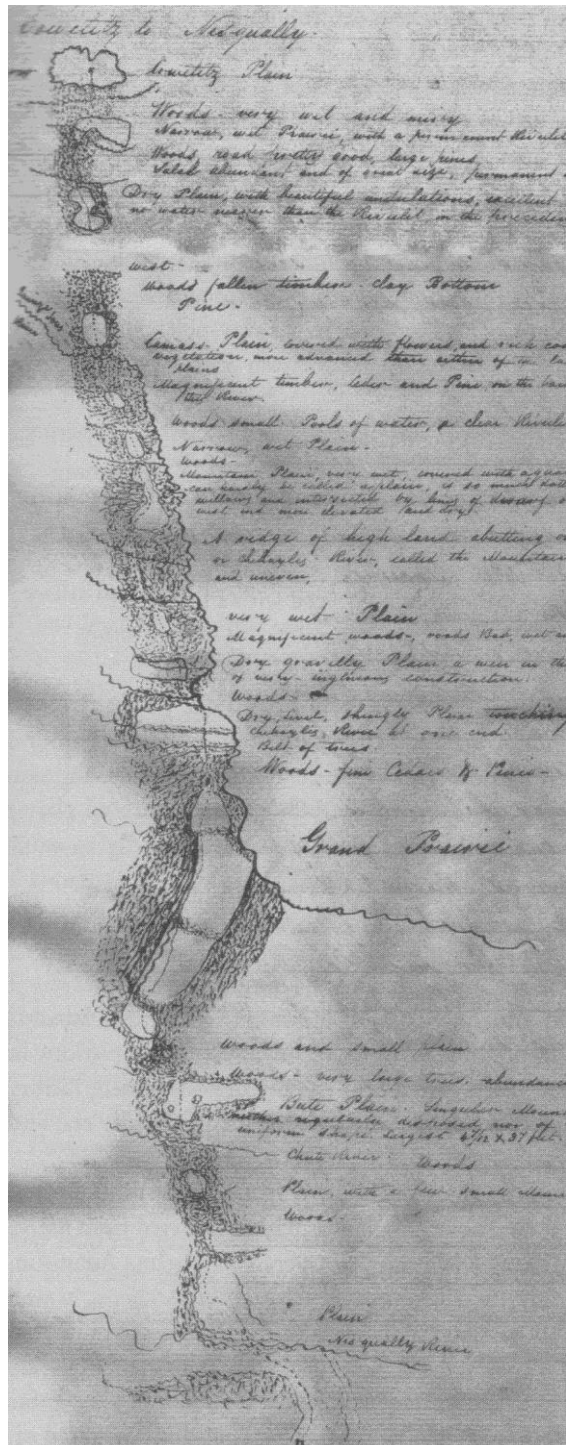 Cowlitz to Nisqually.
Cowlitz Plain
Woods - very wet and miry
Narrow, wet Prairie, with a permanent Rivulet
Woods, road pretty good, large pines,
Salal abundant and of great size, permanent
Dry Plain, with beautiful undulations, excellent
no water nearer than the Rivulet in the preceding
west -
woods fallen timber - clay Bottom
Pine -
Camass Plain, covered with flowers, and rich
vegetation, more advanced than either of the
plains
Magnificent timber, Ceder and Pine, on the
the River.
Woods small Pools of water, a clear
Narrow, wet Plain -
Woods -
Mountain Plain, very wet, covered with
can hardly be called a plain, is so much
willows and intersected by lines of
west end more elevated land dry.
A ridge of high land abutting
or Chekaylis River, called the Mountain
and uneven,
very wet Plain
Magnificent woods -, roads Bad, wet
Dry gravelly Plain a weir in the
of very - ingenious construction.
Woods -
Dry, level, shingly Plain touching
Chekaylis River at one end
Belt of trees
Woods - fine Cedars & Pines -
Grand Prairie
Woods and small plain
Woods - very large trees, abundance
Bute Plain. Singular Mounds
neither regularly disposed, nor of
uniform shape largest
Chute River Woods
Plain, with a few small
Woods -
Plain
Nisqually River